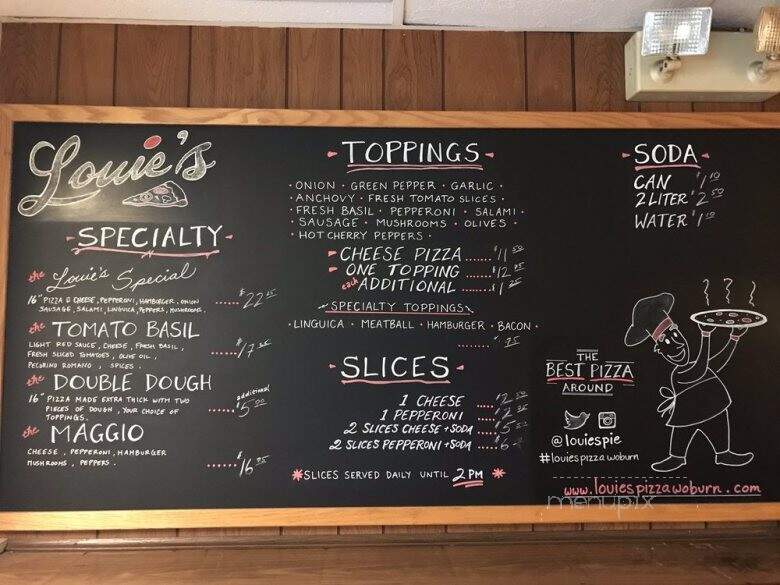 Louie's
SPECIALTY
the Louie's Special
16" PIZZA & CHEESE, PEPPERONI, HAMBURGER, ONION
SAUSAGE, SALAMI, LINGUICA, PEPPERS, MUSHROOMS.
...... $22
the TOMATO BASIL
LIGHT RED SAUCE, CHEESE, FRESH BASIL,
FRESH SLICED TOMATOES, OLIVE OIL,
PECORINO ROMANO, SPICES.
...... $17
the DOUBLE DOUGH
16" PIZZA MADE EXTRA THICK WITH TWO
PIECES OF DOUGH, YOUR CHOICE OF
TOPPINGS.
additional
...... $5.00
the MAGGIO
CHEESE, PEPPERONI, HAMBURGER
MUSHROOMS, PEPPERS.
...... $16
- TOPPINGS -
· ONION · GREEN PEPPER · GARLIC ·
· ANCHOVY · FRESH TOMATO SLICES ·
· FRESH BASIL · PEPPERONI · SALAMI ·
· SAUSAGE · MUSHROOMS · OLIVES ·
· HOT CHERRY PEPPERS ·
CHEESE PIZZA ...... $11
ONE TOPPING ...... $12
each ADDITIONAL ...... $1
SPECIALTY TOPPINGS
· LINGUICA · MEATBALL · HAMBURGER · BACON ·
...... .75
- SLICES -
1 CHEESE ...... $2
1 PEPPERONI ...... $2
2 SLICES CHEESE + SODA ...... $5
2 SLICES PEPPERONI + SODA ...... $6
*SLICES SERVED DAILY UNTIL 2 PM *
- SODA -
CAN $1
2 LITER $2
WATER $1
THE
BEST PIZZA
AROUND
@louiespie
#louiespizzawoburn
www.louiespizzawoburn.com
menupix